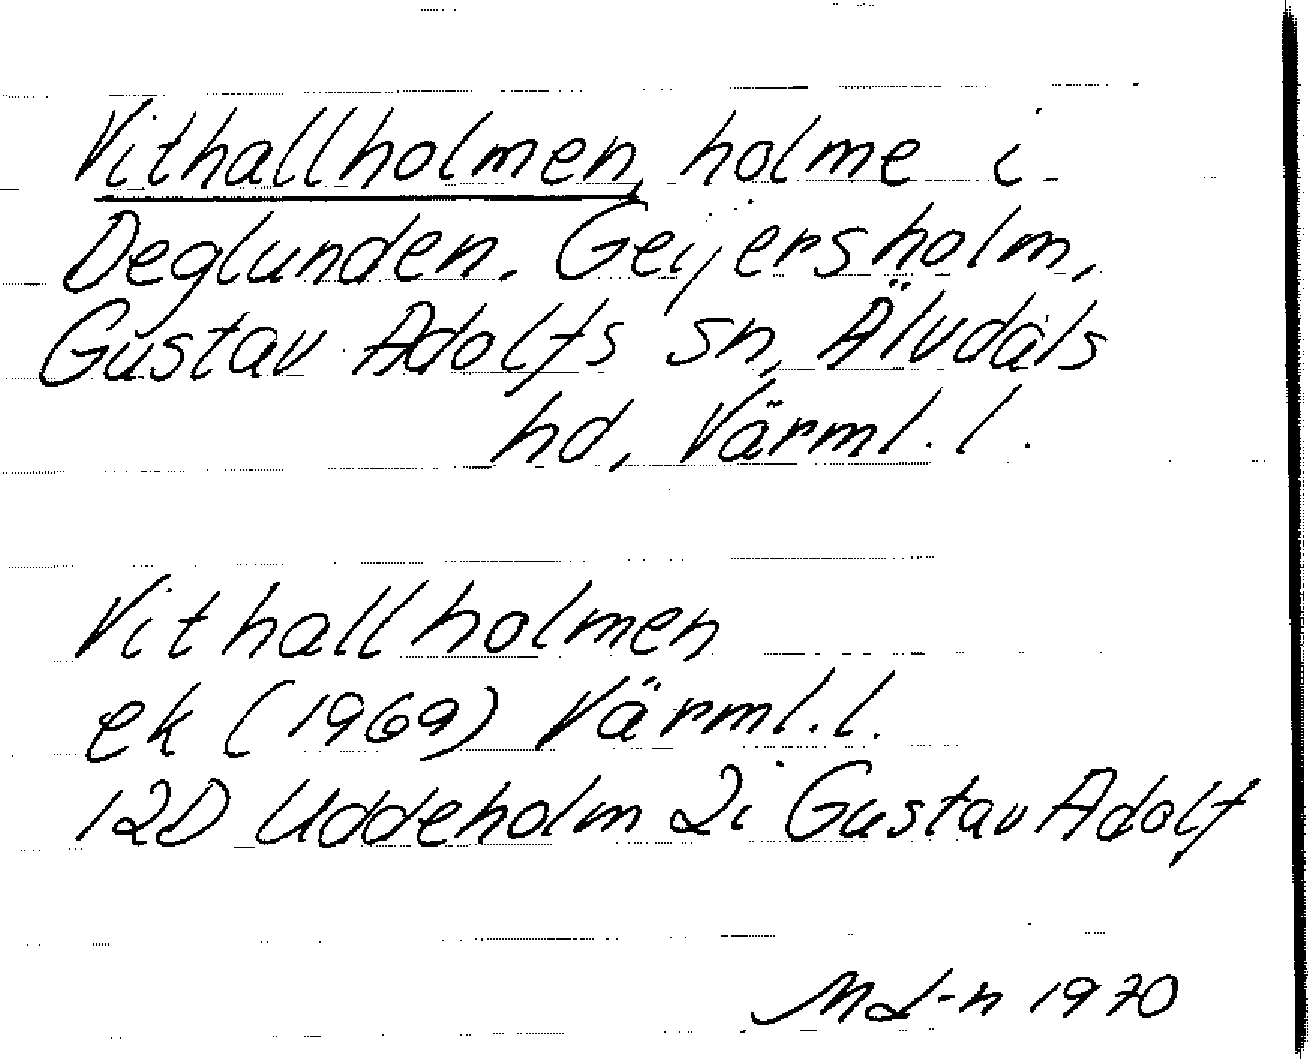 Vithallholmen, holme i
Deglunden. Geijersholm,
Gustav Adolfs sn, Älvdals
hd, Värml. l.
Vithallholmen
ek (1969) Värml. l.
12D Uddeholm 2i Gustav Adolf
ML-n 1970